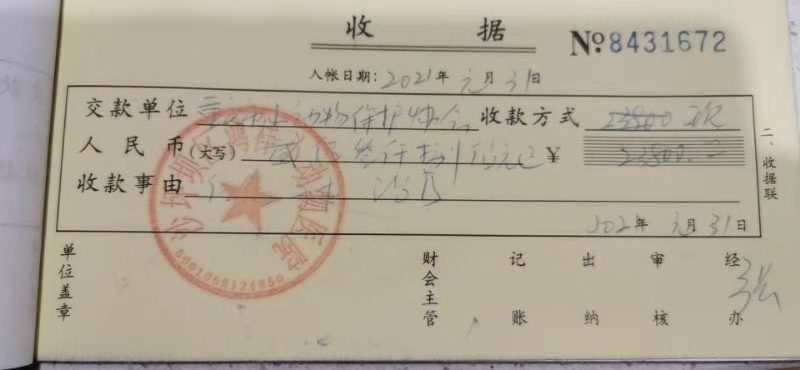 收 据
№ 8431672
入帐日期：2021年 元月31日
交款单位 市小动物保护协会 收款方式 23800元
人民币（大写） 贰万叁仟捌佰元正 ¥ 23800.
收款事由
2021年 元月31日
二、收据联
单位盖章 财会主管 记账 出纳 审核 经办 张
沙坪坝 鸿伟 动物医院